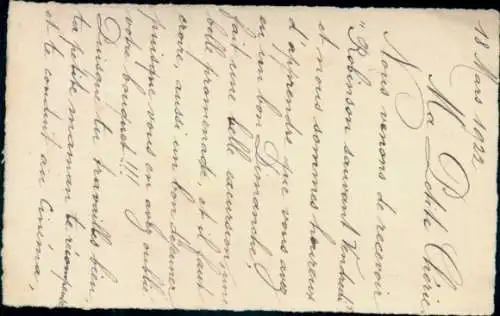 18 Mars 1922
Ma Petite Chérie
Nous venons de recevoir
"Robinson sauvant Vendredi"
et nous sommes heureux
d'apprendre que vous avez
eu un bon Dimanche,
fait une belle excursion, une
belle promenade, et il faut
croire, aussi un bon déjeuner
puisque vous en avez oublié
votre bouquet !!!
Puisque tu travailles bien,
ta petite maman te récompense
et te conduit au Cinéma,